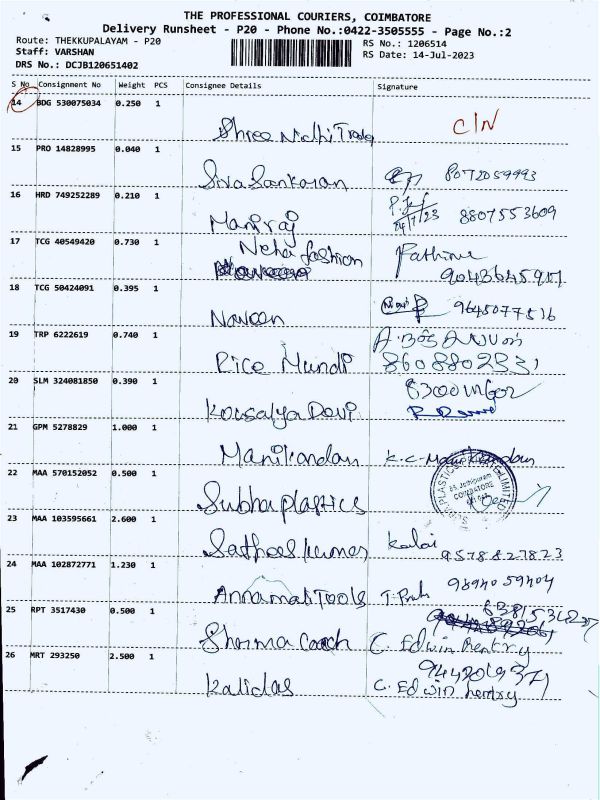 THE PROFESSIONAL COURIERS, COIMBATORE
Delivery Runsheet - P20 - Phone No.:0422-3505555 - Page No.:2
Route: THEKKUPALAYAM - P20
RS No.: 1206514
Staff: VARSHAN
RS Date: 14-Jul-2023
DRS No.: DCJB120651402
S No Consignment No Weight PCS Consignee Details Signature
14 BDG 530075034 0.250 1
Shree Nidhi C/N
15 PRO 14828995 0.040 1
Siva Sankaran 8072059993
16 HRD 749252289 0.210 1
Maniraj 14/7/23 8807553609
17 TCG 40549420 0.730 1
Neha fashion Fathima
18 TCG 50424091 0.395 1
Naveen 9645077516
19 TRP 6222619 0.740 1
Rice Mundi
20 SLM 324081850 0.390 1
Kousalya Devi
21 GPM 5278829 1.000 1
Manikandan K.C-Manikandan
22 MAA 570152052 0.500 1
Subha plastics COIMBATORE
23 MAA 103595661 2.600 1
Satheeskumar Kalai 9578827823
24 MAA 102872771 1.230 1
Annamali Tools 9894059404
25 RPT 3517430 0.500 1
Sharma Coach C. Edwin Hentry
26 MRT 293250 2.500 1
Kalidas C. Edwin hentry